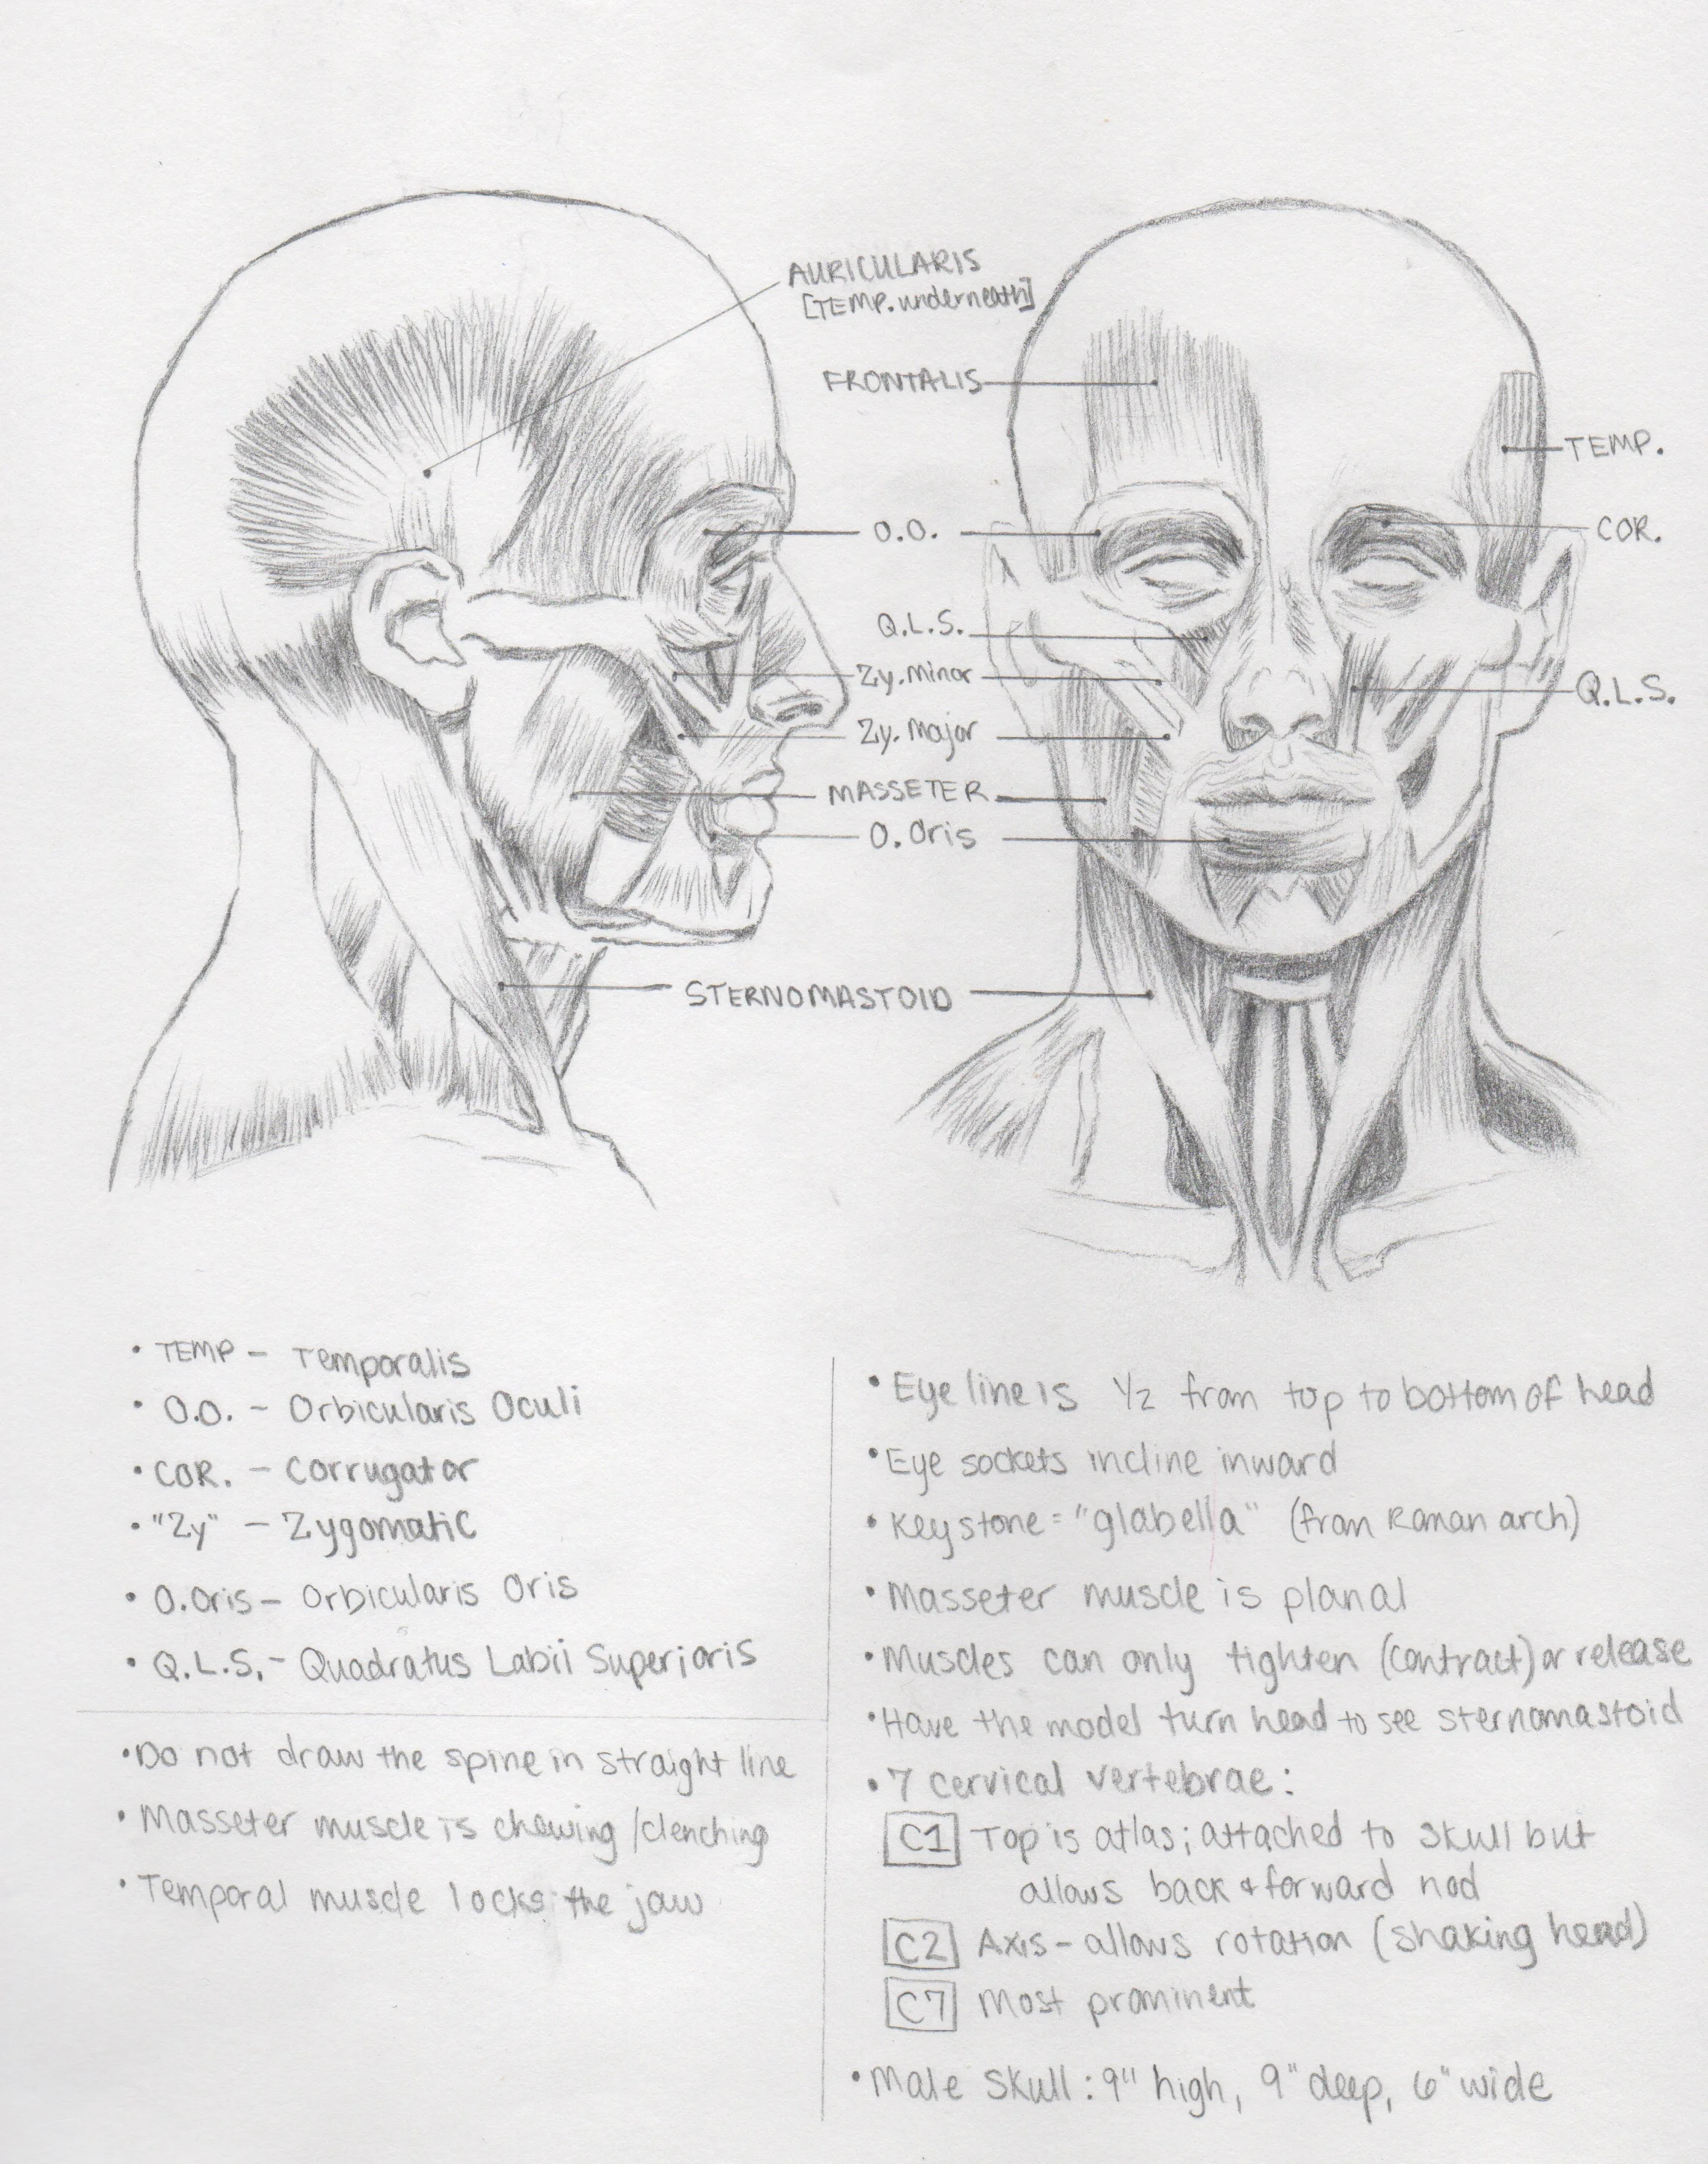 AURICULARIS
[TEMP. underneath]
FRONTALIS
TEMP.
O.O.
COR.
Q.L.S.
Zy. Minor
Q.L.S.
Zy. Major
MASSETER
O. Oris
STERNOMASTOID
• TEMP – Temporalis
• O.O. – Orbicularis Oculi
• COR. – Corrugator
• "Zy" – Zygomatic
• O.Oris – Orbicularis Oris
• Q.L.S. – Quadratus Labii Superioris
• Do not draw the spine in straight line
• Masseter muscle is chewing/clenching
• Temporal muscle locks the jaw
• Eye line is 1/2 from top to bottom of head
• Eye sockets incline inward
• Keystone = "glabella" (from Roman arch)
• Masseter muscle is planal
• Muscles can only tighten (contract) or release
• Have the model turn head to see sternomastoid
• 7 cervical vertebrae:
C1 Top is atlas; attached to skull but
allows back & forward nod
C2 Axis – allows rotation (shaking head)
C7 Most prominent
• Male Skull: 9" high, 9" deep, 6" wide